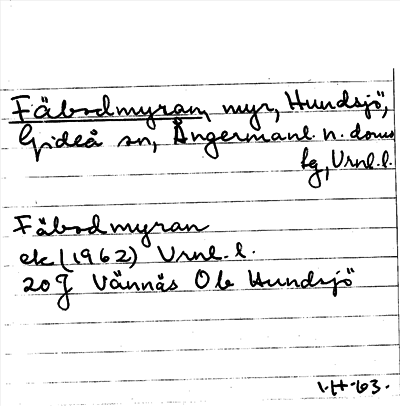 Fäbodmyran, myr, Hundsjö,
Gideå sn, Ångermanl. n. doms
fg, Vrnl. l.
Fäbodmyran
ek (1962) Vrnl. l.
20J Vännäs Ob Hundsjö
-63.